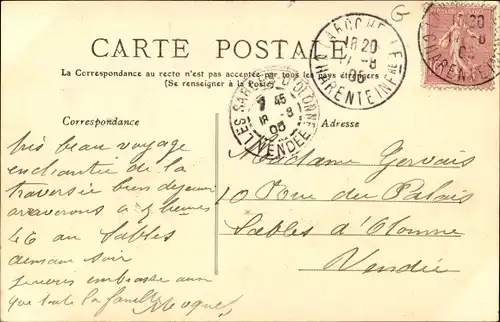 CARTE POSTALE
La Correspondance au recto n'est pas acceptée par tous les pays étrangers
(Se renseigner à la Poste)
LA ROCHELLE
18 20
-8
05
CHARENTE INFRE
LES SABLES D'OLONNE
7 45
18 -8
05
VENDÉE
Correspondance
Adresse
très beau voyage
enchantée de la
traversée bien déjeuné
arriverons à 7 heures
46 au Sables
demain soir
embrasse ainsi
que toute la famille
Madame Gervais
10 Rue du Palais
Sables d'Olonne
Vendée